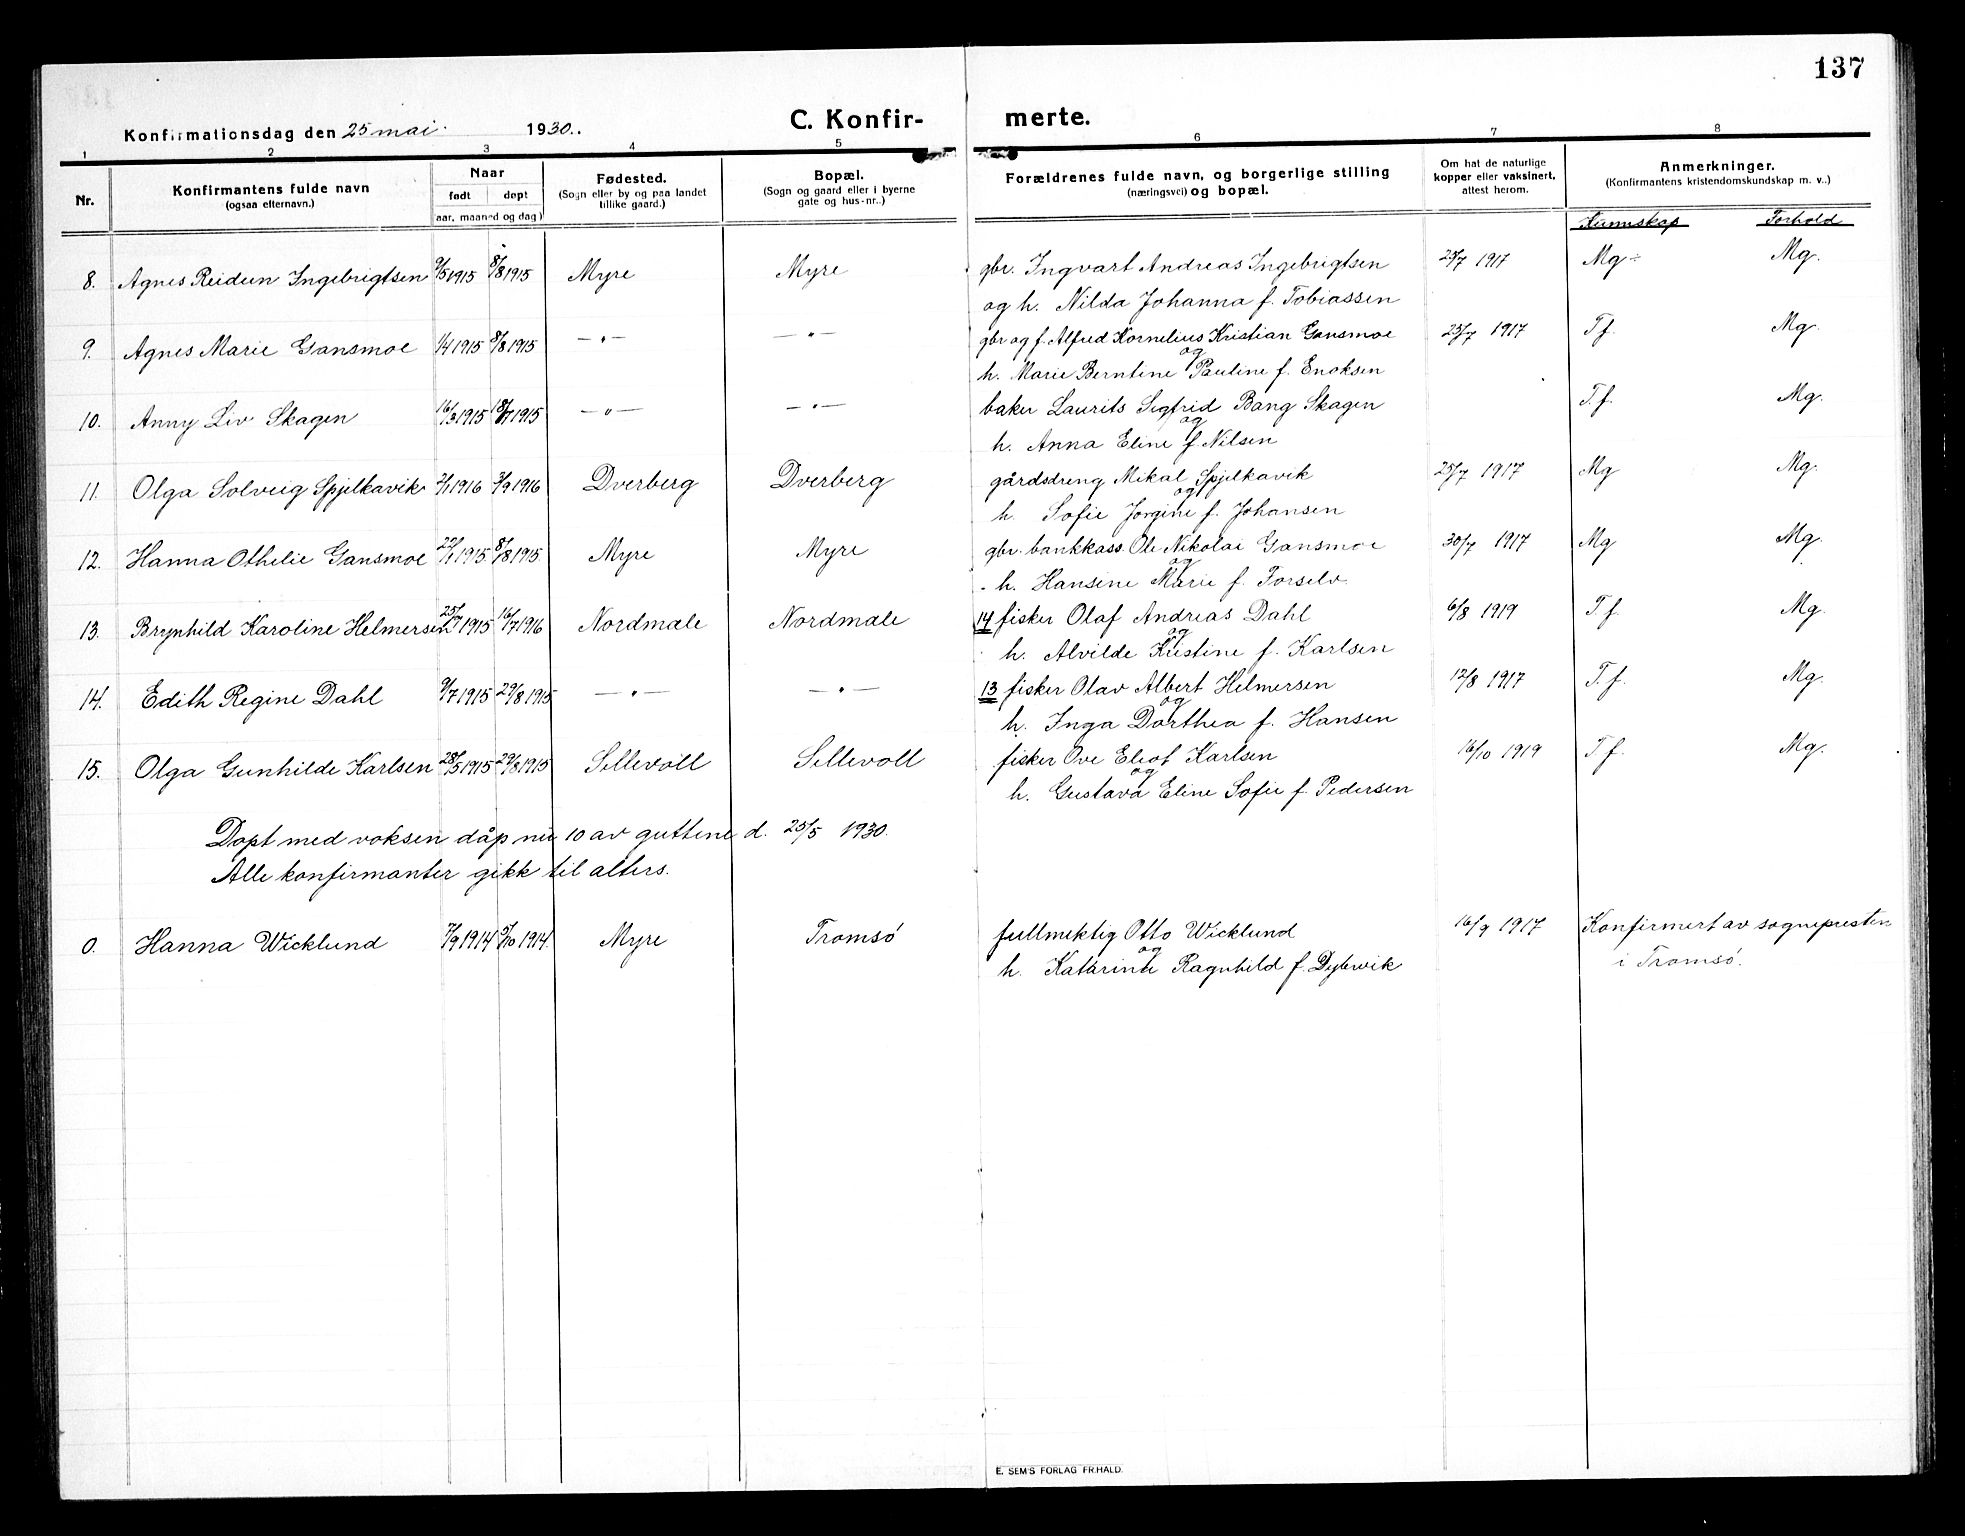 137
Konfirmationsdag den 25 mai 1930.
C. Konfir- merte.
1 2 3 4 5 6 7 8
Nr.
Konfirmantens fulde navn
(ogsaa efternavn.)
Naar
født døpt
(aar, maaned og dag)
Fødested.
(Sogn eller by og paa landet
tillike gaard.)
Bopæl.
(Sogn og gaard eller i byerne
gate og hus-nr..)
Forældrenes fulde navn, og borgerlige stilling
(næringsvei) og bopæl.
Om hat de naturlige
kopper eller vaksinert,
attest herom.
Anmerkninger.
(Konfirmantens kristendomskundskap m. v..)
Kunnskap Forhold
8. Agnes Reidun Ingebrigtsen 9/5 1915 8/8 1915 Myre Myre gbr. Ingvart Andreas Ingebrigtsen 25/7 1917 Mg ÷ Mg.
og h. Nilda Johanna f. Tobiassen
9. Agnes Marie Gansmoe 1/4 1915 8/8 1915 —"— —"— gbr og f. Alfred Kornelius Kristian Gansmoe 23/7 1917 T.f. Mg.
og
h. Marie Berntine Pauline f. Enoksen
10. Anny Liv Skagen 16/3 1915 18/7 1915 —"— —"— baker Laurits Sigfrid Bang Skagen T.f. Mg.
og
h. Anna Eline f. Nilsen
11. Olga Solveig Spjelkavik 2/1 1916 3/9 1916 Dverberg Dverberg gårdsdreng Mikal Spjelkavik 25/7 1917 Mg Mg.
og
h. Sofie Jørgine f. Johansen
12. Hanna Othelie Gansmoe 22/1 1915 8/8 1915. Myre Myre gbr. bankkass. Ole Nikolai Gansmoe 30/7 1917 Mg Mg.
og
h. Hansine Marie f. Forselv
13. Brynhild Karoline Helmersen 25/7 1915 16/7 1916 Nordmæle Nordmæle 14 fisker Olaf Andreas Dahl 6/8 1919 T.f. Mg.
og
h. Alvilde Kristine f. Karlsen
14. Edith Regine Dahl 9/7 1915 29/8 1915 —"— —"— 13 fisker Olav Albert Helmersen 12/8 1917 T.f. Mg.
og
h. Inga Dorthea f. Hansen
15. Olga Gunhilde Karlsen 28/5 1915 29/8 1915 Sellevoll Sellevoll fisker Ove Eliot Karlsen 16/10 1919 T.f. Mg.
og
h. Gustava Eline Sofie f. Pedersen
Døpt med voksen dåp nr 10 av guttene d. 25/5 1930.
Alle konfirmanter gikk til alters.
0. Hanna Wicklund 7/9 1914 9/10 1914. Myre Tromsø fullmektig Otto Wicklund 16/9 1917 Konfirmert av sognepresten
og
h. Kathrine Ragnhild f. Dybwik i Tromsø.
E. SEM'S FORLAG FR.HALD.